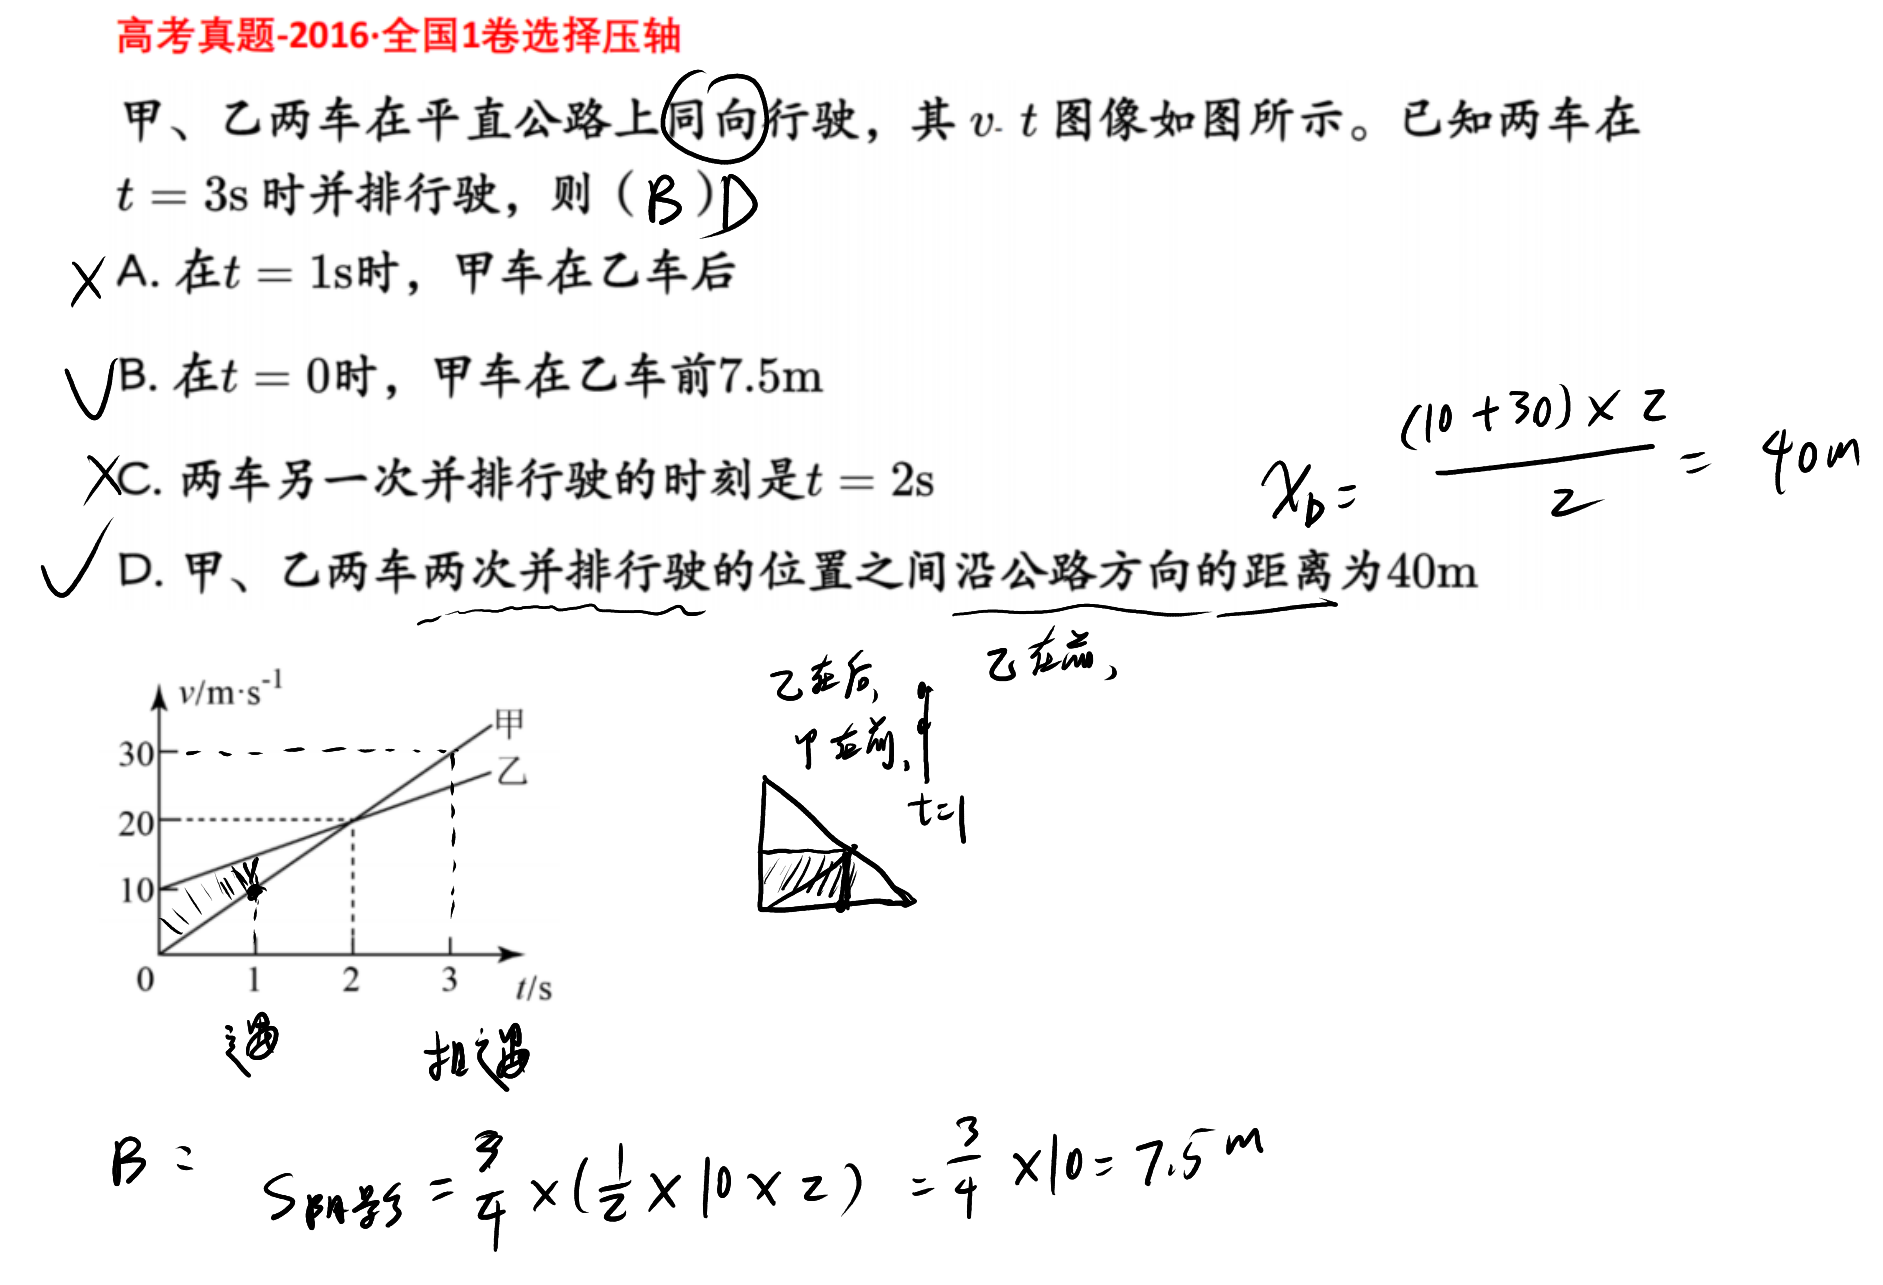 高考真题-2016·全国1卷选择压轴
甲、乙两车在平直公路上同向行驶，其 v- t 图像如图所示。已知两车在
t = 3s 时并排行驶，则（B）D
× A. 在t = 1s时，甲车在乙车后
√ B. 在t = 0时，甲车在乙车前7.5m
× C. 两车另一次并排行驶的时刻是t = 2s
x_D = (10+30)×2 / 2 = 40m
√ D. 甲、乙两车两次并排行驶的位置之间沿公路方向的距离为40m
乙在后，
乙在前，
甲在前，
t=1
v/m·s⁻¹
甲
乙
30
20
10
0 1 2 3 t/s
遇
相遇
B：
S阴影 = 3/4 ×(1/2 × 10 × 2) = 3/4 ×10 = 7.5m